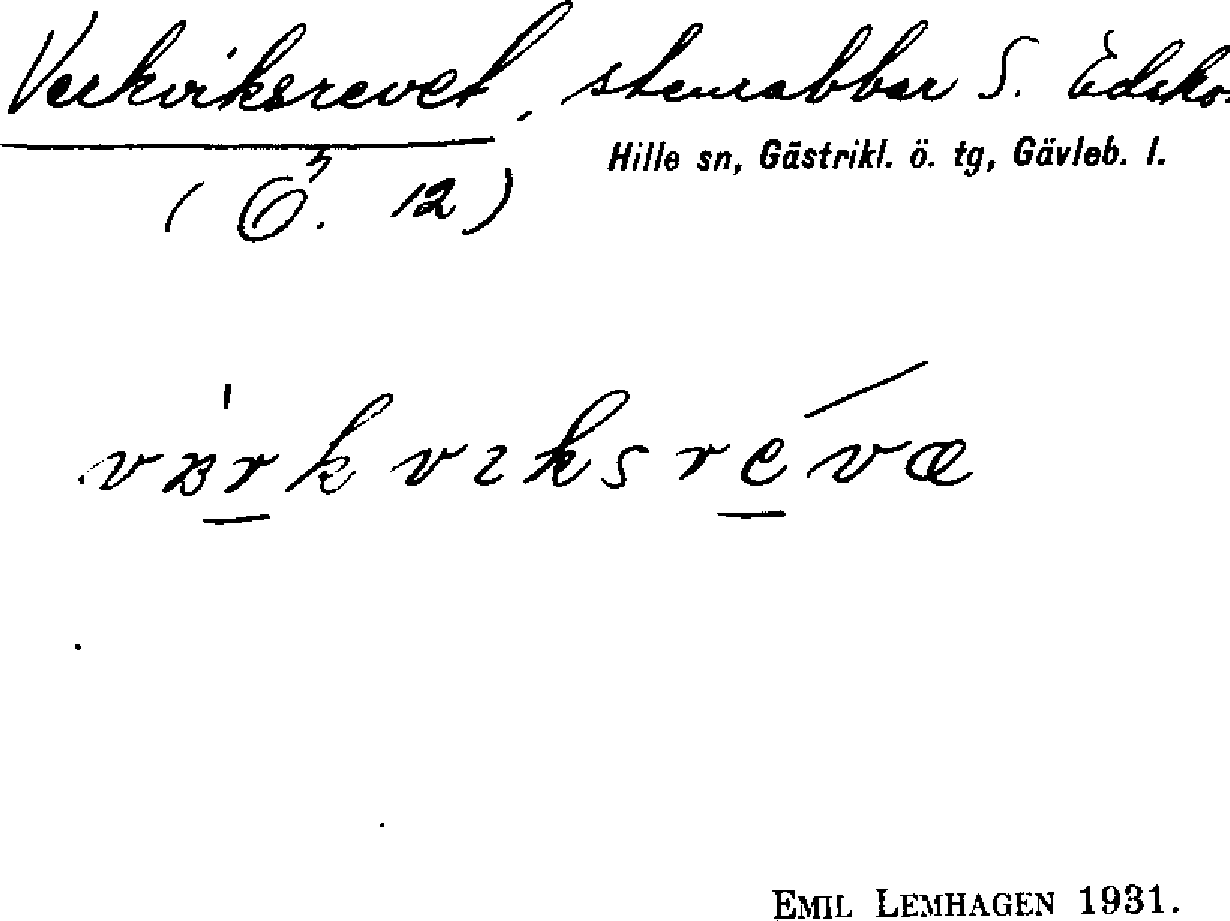 Verkviksrevet, stenrabbar S. Edsko.
Hille sn, Gästrikl. ö. tg, Gävleb. l.
(Ö. 12)
värkviksrévæ
EMIL LEMHAGEN 1931.